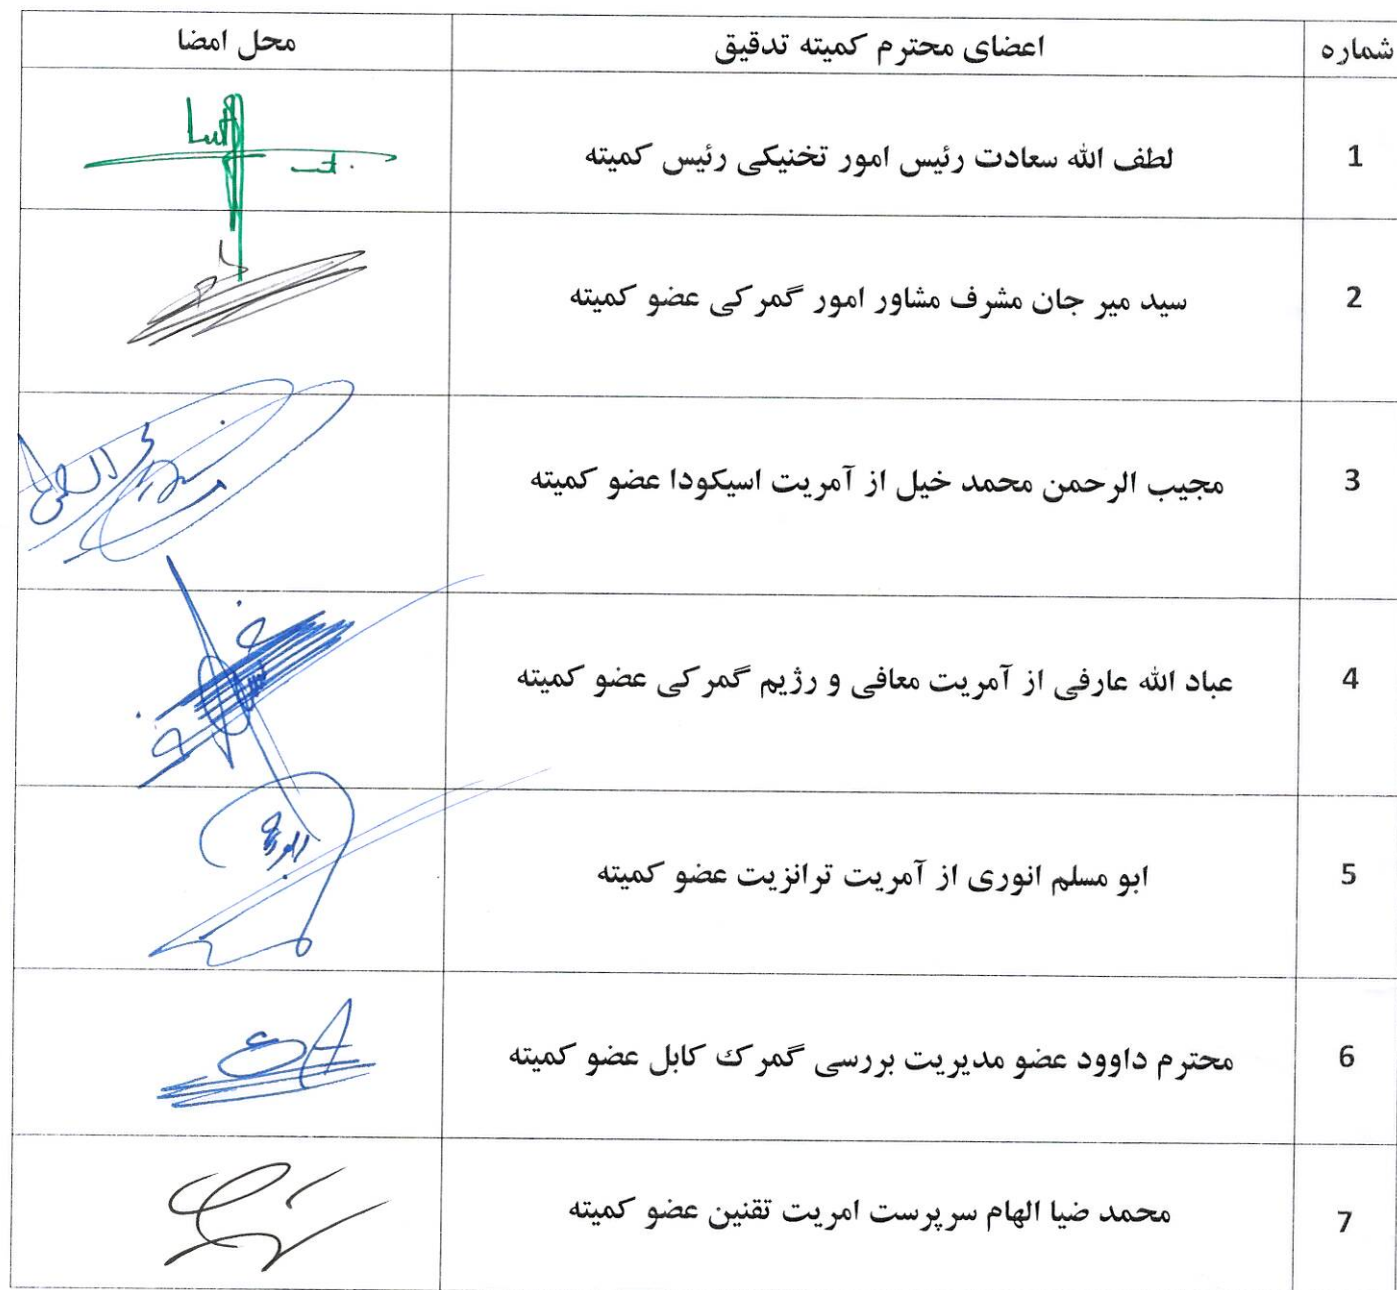 شماره اعضای محترم کمیته تدقیق محل امضا
1 لطف الله سعادت رئیس امور تخنیکی رئیس کمیته
2 سید میر جان مشرف مشاور امور گمرکی عضو کمیته
3 مجیب الرحمن محمد خیل از آمریت اسیکودا عضو کمیته
4 عباد الله عارفی از آمریت معافی و رژیم گمرکی عضو کمیته
5 ابو مسلم انوری از آمریت ترانزیت عضو کمیته
6 محترم داوود عضو مدیریت بررسی گمرک کابل عضو کمیته
7 محمد ضیا الهام سرپرست امریت تقنین عضو کمیته